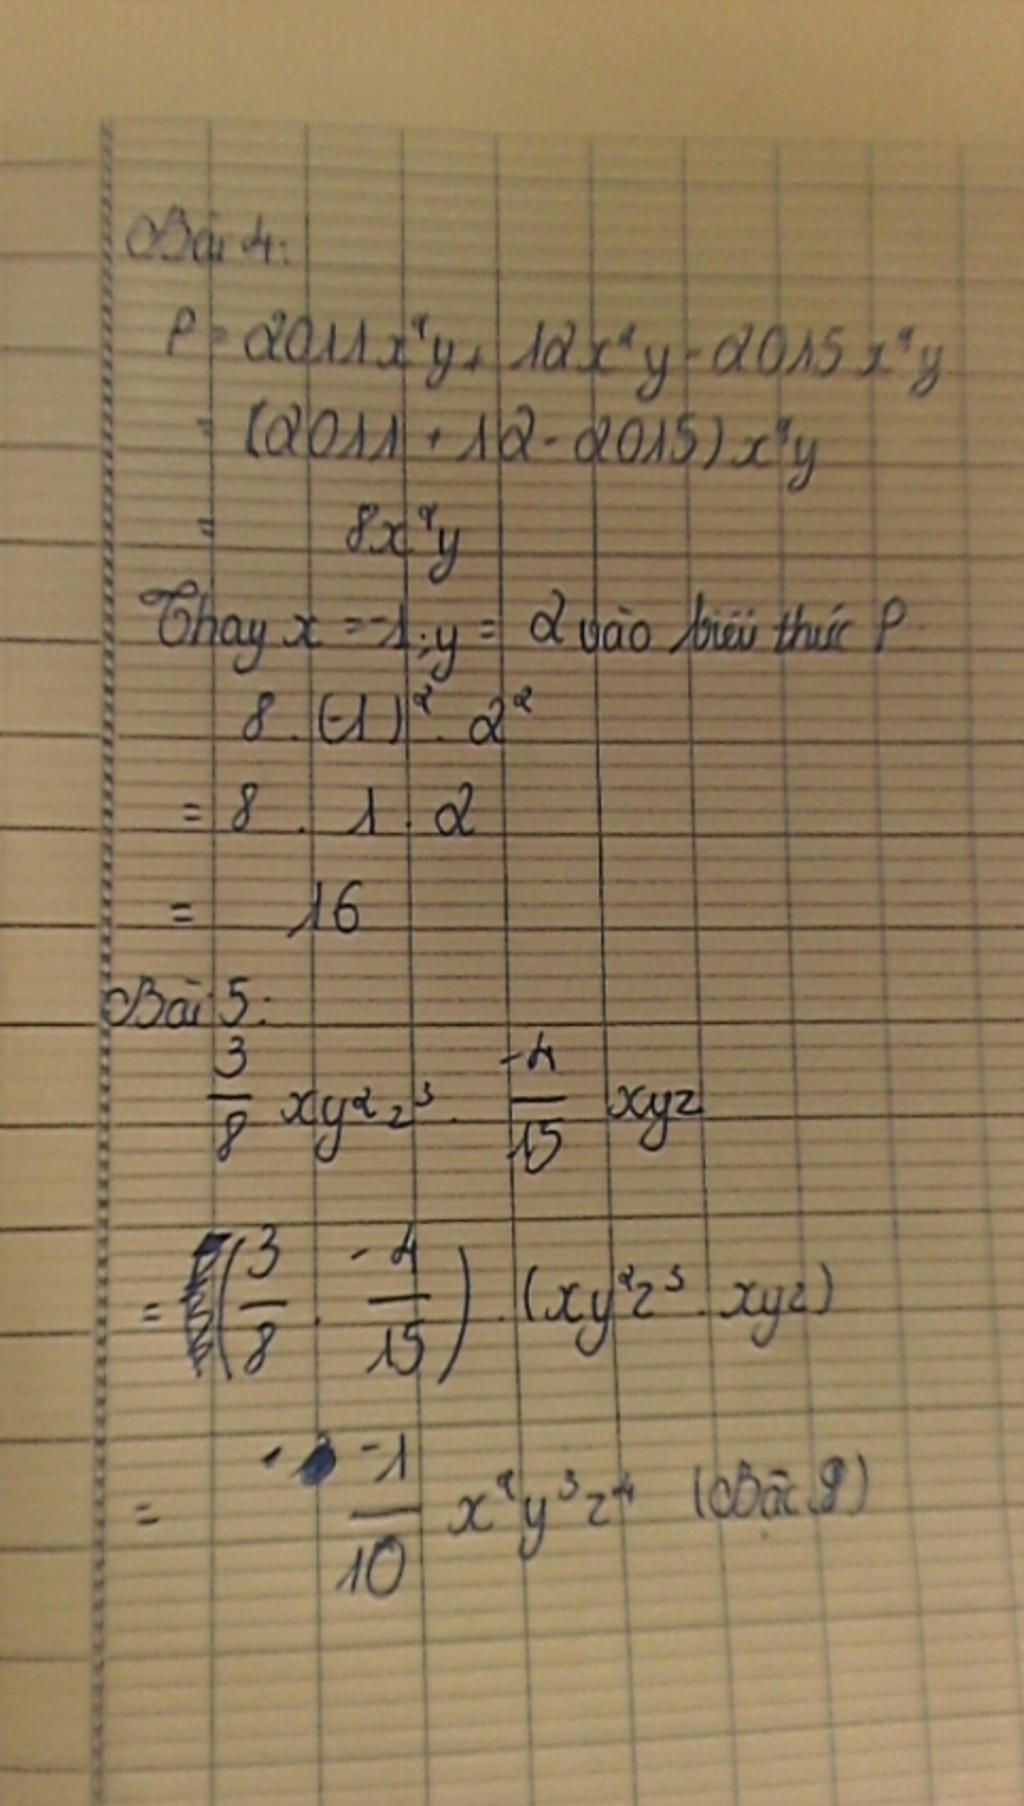 Bài 4:
P = 2011x²y + 12x²y - 2015x²y
= (2011 + 12 - 2015) x²y
= 8x²y
Thay x = -1; y = 2 vào biểu thức P
8 . (-1)² . 2²
= 8 . 1 . 2
= 16
Bài 5:
3/8 xy²z³ . -4/15 xyz
= (3/8 . -4/15) . (xy²z³ . xyz)
= -1/10 x²y³z⁴ (Bậc 9)